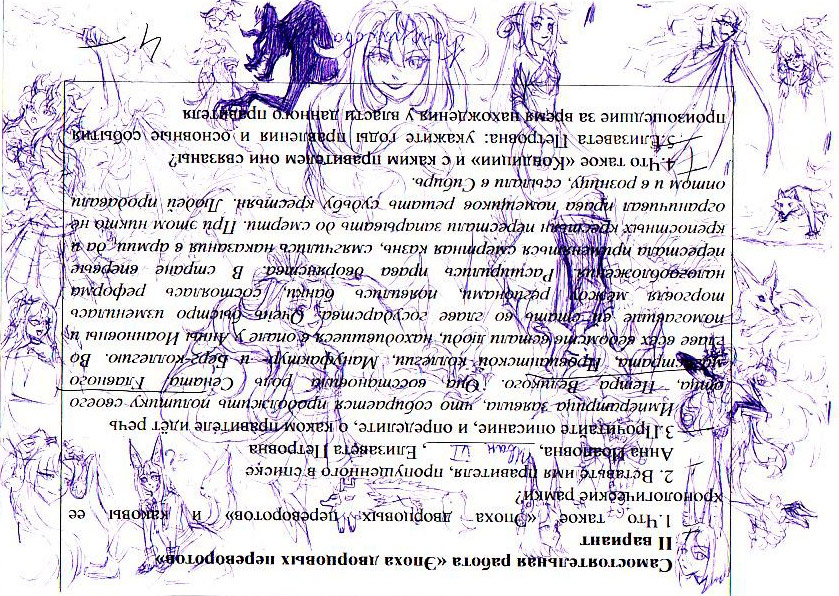 Самостоятельная работа «Эпоха дворцовых переворотов»
II вариант
1.Что такое «Эпоха дворцовых переворотов» и каковы ее
хронологические рамки?
2. Вставьте имя правителя, пропущенного в списке
Анна Иоановна, Иван VI, Елизавета Петровна
3.Прочитайте описание, и определите, о каком правителе идёт речь
Императрица заявила, что собирается продолжить политику своего
отца, Петра Великого. Она восстановила роль Сената Главного
магистрата, Провиантской коллегии, Мануфактур и Берг-коллегию. Во
главе всех ведомств встали люди, находившиеся в опале у Анны Иоанновны и
помогавшие ей стать во главе государства. Очень быстро изменилась
торговля между регионами, появились банки, состоялась реформа
налогообложения. Расширились права дворянства. В стране впервые
перестала применяться смертная казнь, смягчились наказания в армии, да и
крепостных крестьян перестали запарывать до смерти. При этом никто не
ограничивал права помещиков решать судьбу крестьян. Людей продавали
оптом и в розницу, ссылали в Сибирь.
4.Что такое «Кондиции» и с каким правителем они связаны?
5.Елизавета Петровна: укажите годы правления и основные события
произошедшие за время нахождения у власти данного правителя